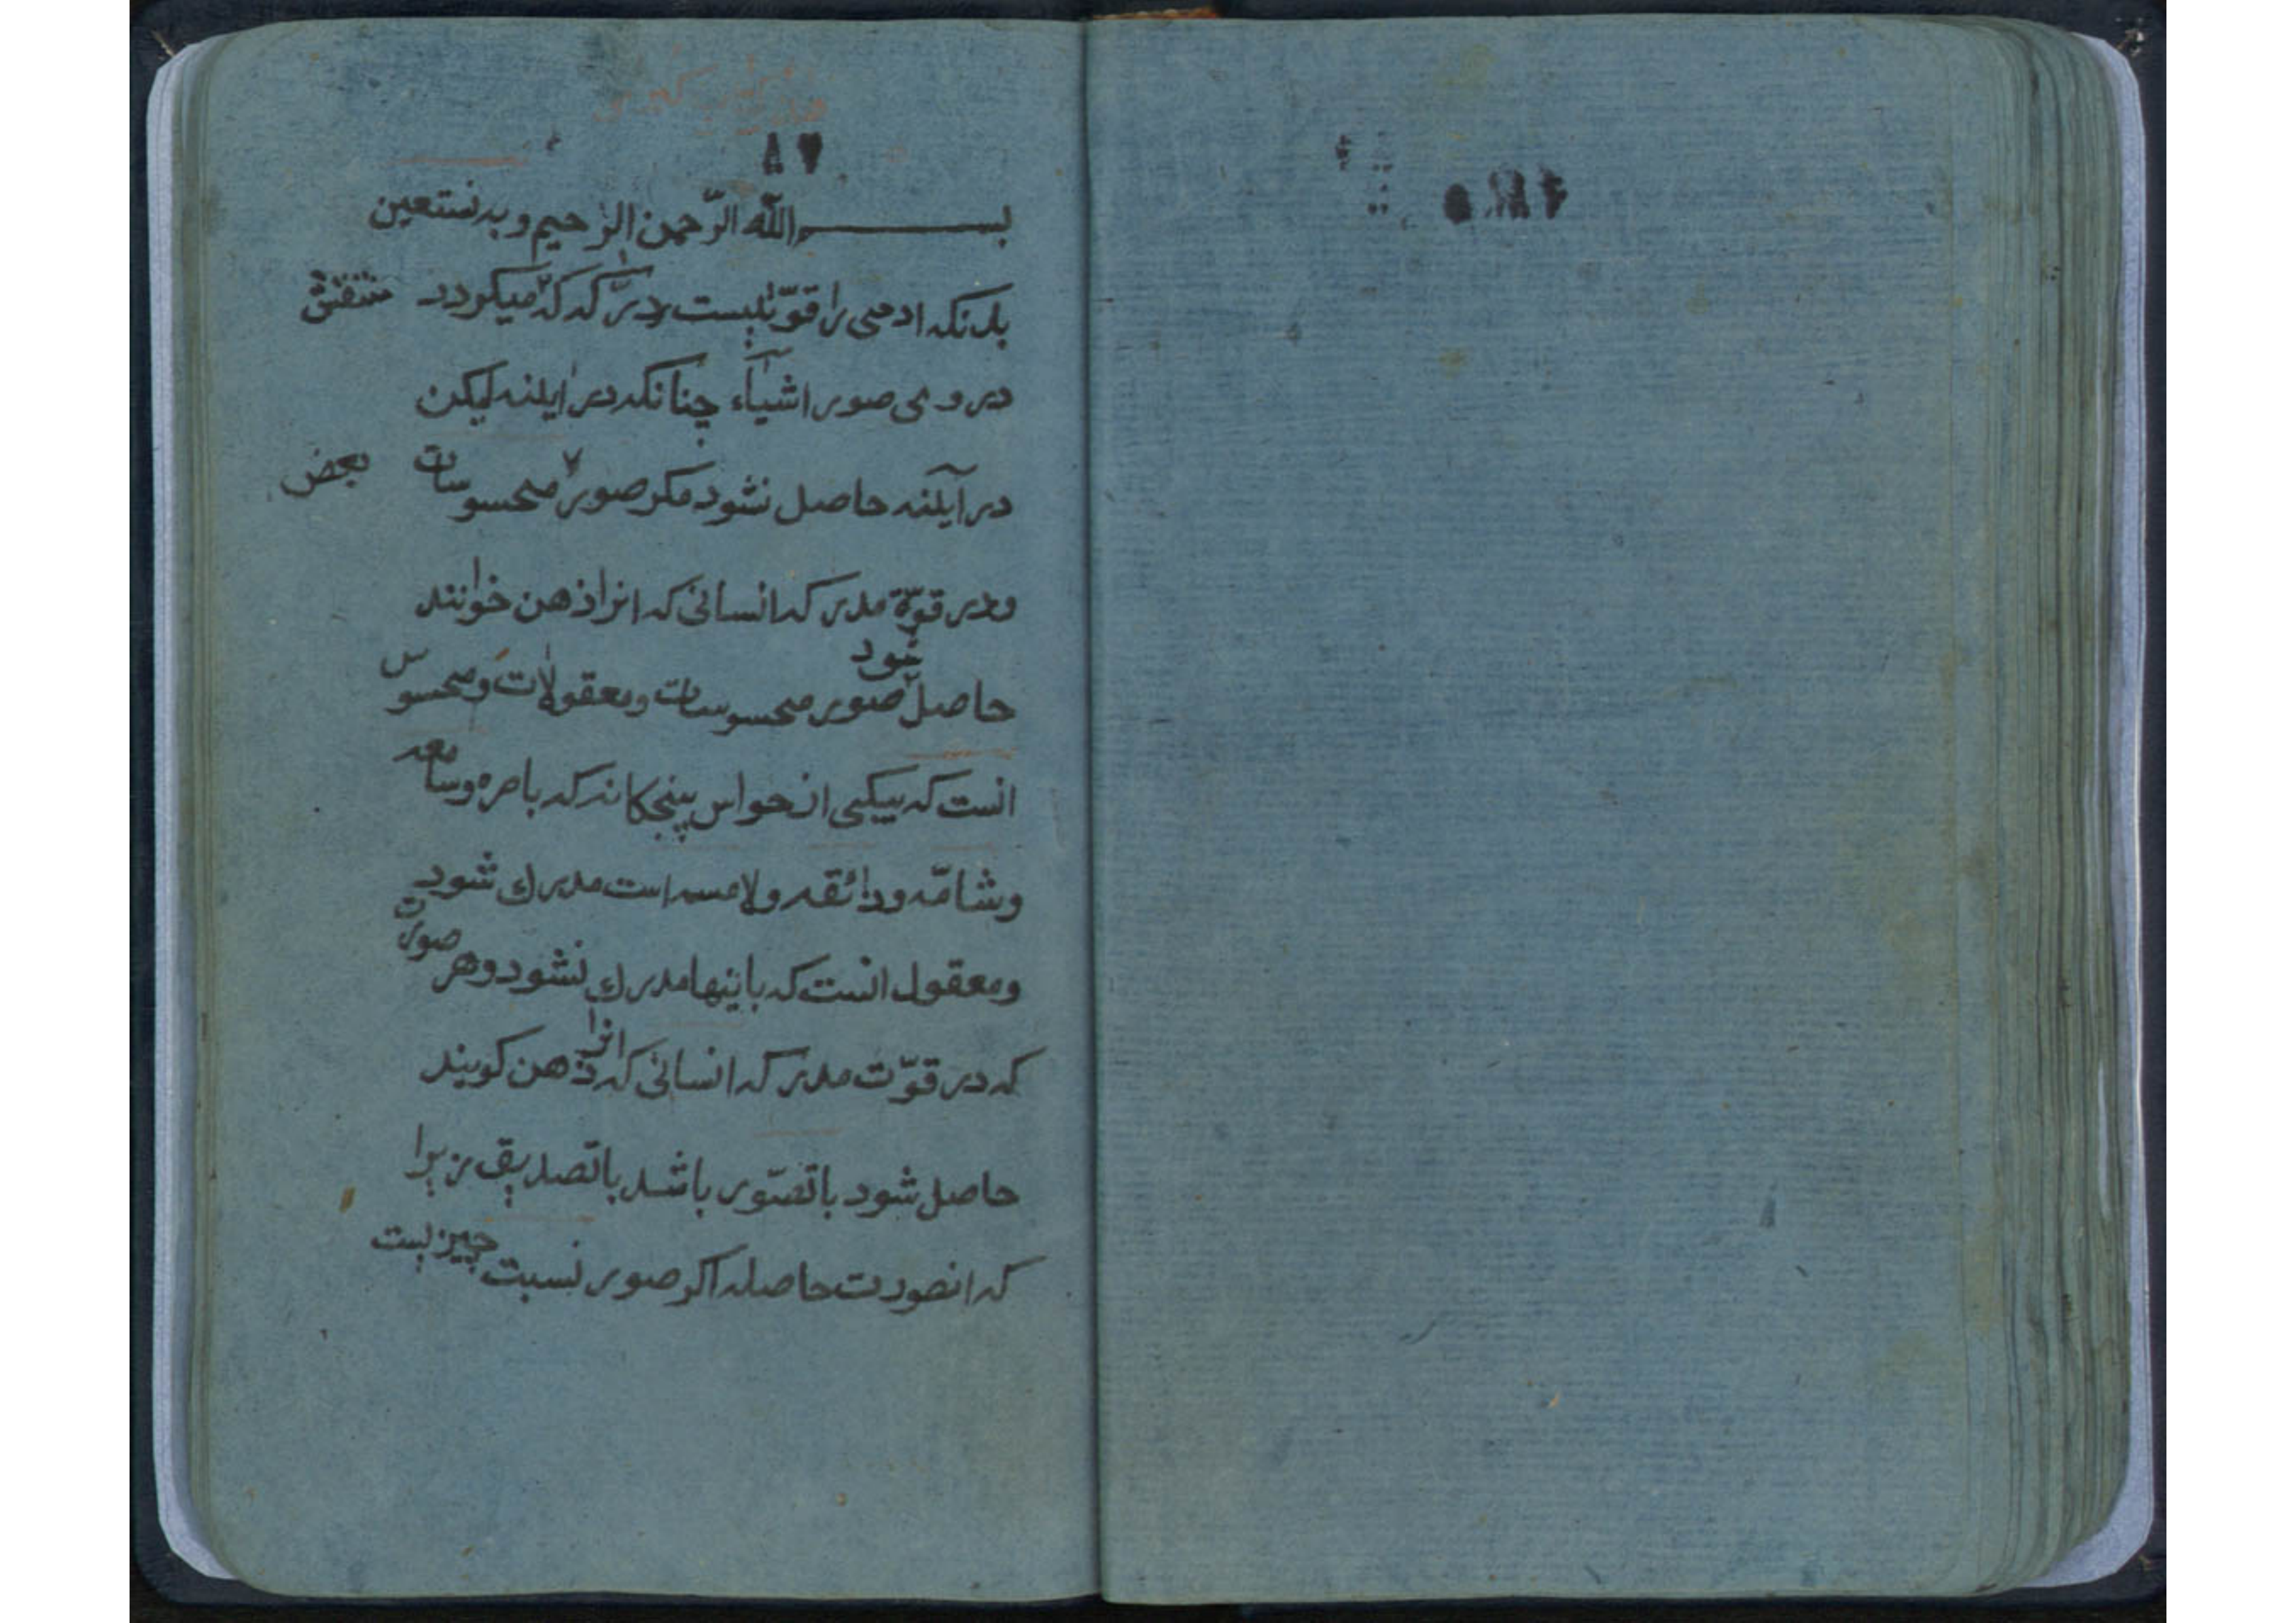 بســـــــم الله الرّحمن الرّحیم وبه نستعین
بدانکه ادمی را قوّتیست درّاکه که میکردد منتقش
در وی صور اشیاء چنانکه در ایلنه لیکن
در آیلنه حاصل نشود مکر صور محسوسات بعض
ودر قوّة مدرکه انسانی که انرا ذهن خوانند
حاصل شود صور محسوسات ومعقولات ومحسوس
انست که بیکی از حواس پنجکانه که باصره وسامعه
وشامّه وذائقه ولامسه است مدرك شود
ومعقول انست که باینها مدرك نشود وهر صورت
که در قوّت مدرکه انسانی که انرا ذهن کویند
حاصل شود یا تصّور باشد یا تصدیق زیرا
که انصورت حاصله اکر صور نسبت چیزیست